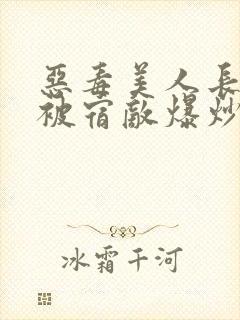 惡毒美人長
被宿敵爆炒
冰霜千河